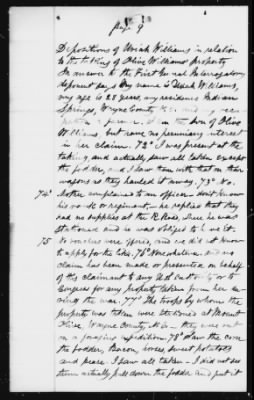 page 9
Depositions of Uriah Williams in relation
to the taking of Olive Williams property
In answer to the First General Interrogatory
deponent says My name is Uriah Williams,
my age is 28 years my residence Indian
Springs, Wayne County
I am the son of Olive
Williams, but have no pecuniary interest
in her claim. 72d I was present at the
taking and actually saw all taken except
the fodder, and I saw them with that on their
wagons as they hauled it away. 73d No.
74th Mother complained to an officer dont know
his rank or regiment he replied that they
had no supplies at the R. Road, where he was
stationed and he was obliged to have it.
75 No vouchers were given, and we did not know
to apply for the like. 76th None whatever no
claim has been made or presented on behalf
of this claimant to any U.S. or to
Congress for any property taken from her
during the war. 77th The troops by whom the
property was taken were stationed at Mount
Olive, Wayne County, N.C. they were out
on a foraging expedition. 78th I saw the corn
the fodder, Bacon, horses, sweet potatoes
and peas. I saw all taken I did not see
them actually pull down the fodder and put it